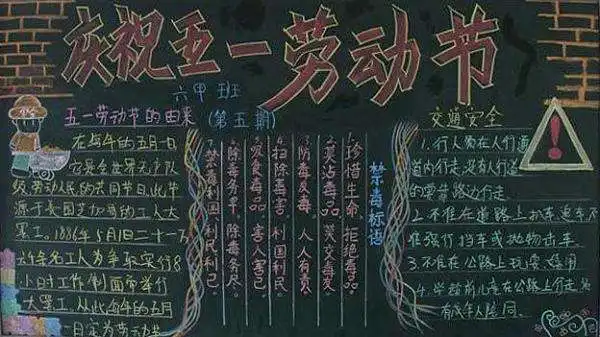 庆祝五一劳动节
六甲班
(第五期)
五一劳动节的由来
在每年的五月一日
它是全世界无产
级、劳动人民的共同节日此节
源于美国芝加哥的工人大
罢工。1886年5月1日二十一
六千余名工人为争取实行8
小时工作制而举行
大罢工从此每年的五月
一日定为劳动节
禁毒标语
1.珍惜生命、拒绝毒品。
2.莫沾毒品、莫交毒友。
3.防毒反毒、人人有责。
4.扫除毒害、利国利民。
5.吸食毒品、害人害己。
6.除毒务早、除毒务尽。
7.禁毒利国、利民利己。
交通安全
1.行人须在人行
道内行走,没有人行道
的要靠路边行走。
2.不准在道路上扒车、追车、不
准强行拦车或抛物击车。
3.不准在公路上玩耍、嬉闹
4.学龄前儿童在公路上行走,须
有成年人陪同。